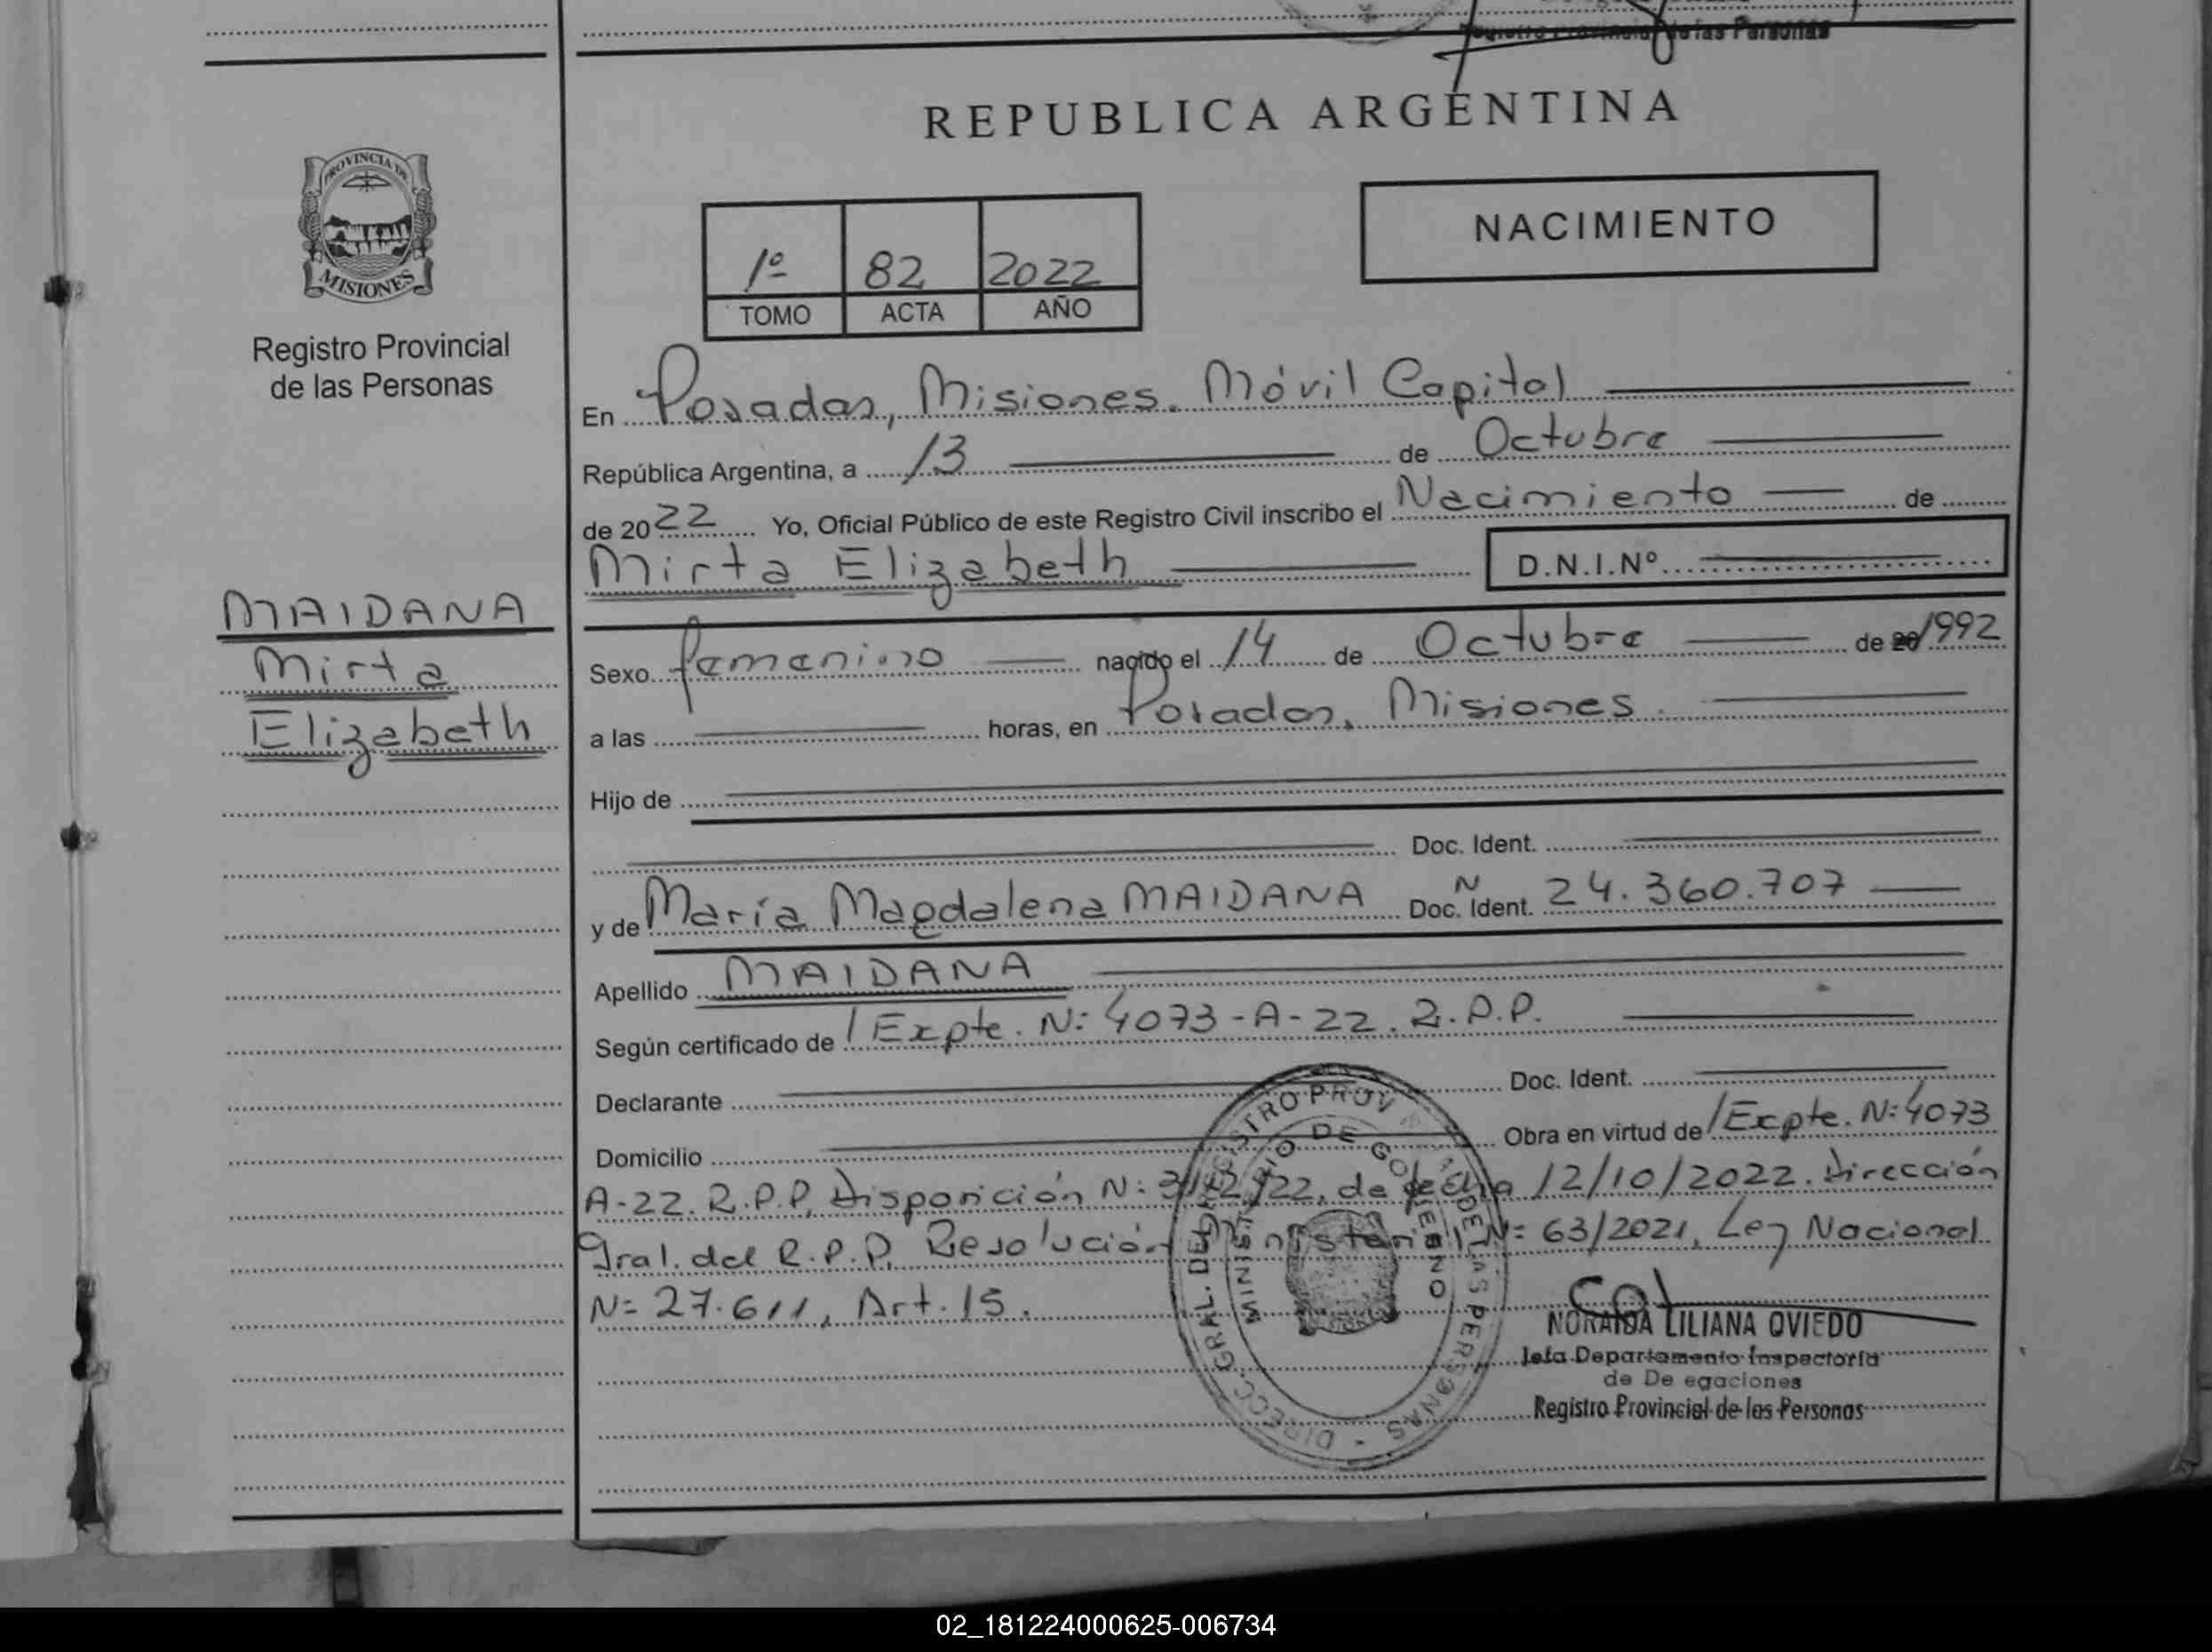 Registro Provincial de las Personas
REPUBLICA ARGENTINA
PROVINCIA DE
MISIONES
Registro Provincial
de las Personas
NACIMIENTO
1º 82 2022
TOMO ACTA AÑO
En Posadas, Misiones. Móvil Capital
República Argentina, a 13 de Octubre
de 2022 Yo, Oficial Público de este Registro Civil inscribo el Nacimiento de
Mirta Elizabeth D.N.I.Nº
MAIDANA
Mirta
Elizabeth
Sexo femenino nacido el 14 de Octubre de 20 1992
a las horas, en Posadas, Misiones.
Hijo de
Doc. Ident.
y de María Magdalena MAIDANA Doc. Ñ Ident. 24.360.707
Apellido MAIDANA
Según certificado de / Expte. N: 4073-A-22. R.P.P.
Declarante Doc. Ident.
Domicilio Obra en virtud de / Expte. N: 4073
A-22. R.P.P. Disposición N: /22, de fecha 12/10/2022. Dirección
Gral. del R.P.P. Resolución Ministerial N: 63/2021, Ley Nacional
N= 27.611, Art. 15.
DIRECC. GRAL. DEL REGISTRO PROV. DE LAS PERSONAS
MINISTERIO DE GOBIERNO
NORAIDA LILIANA OVIEDO
Jefa Departamento Inspectoría
de De egaciones
Registro Provincial de las Personas
02_181224000625-006734